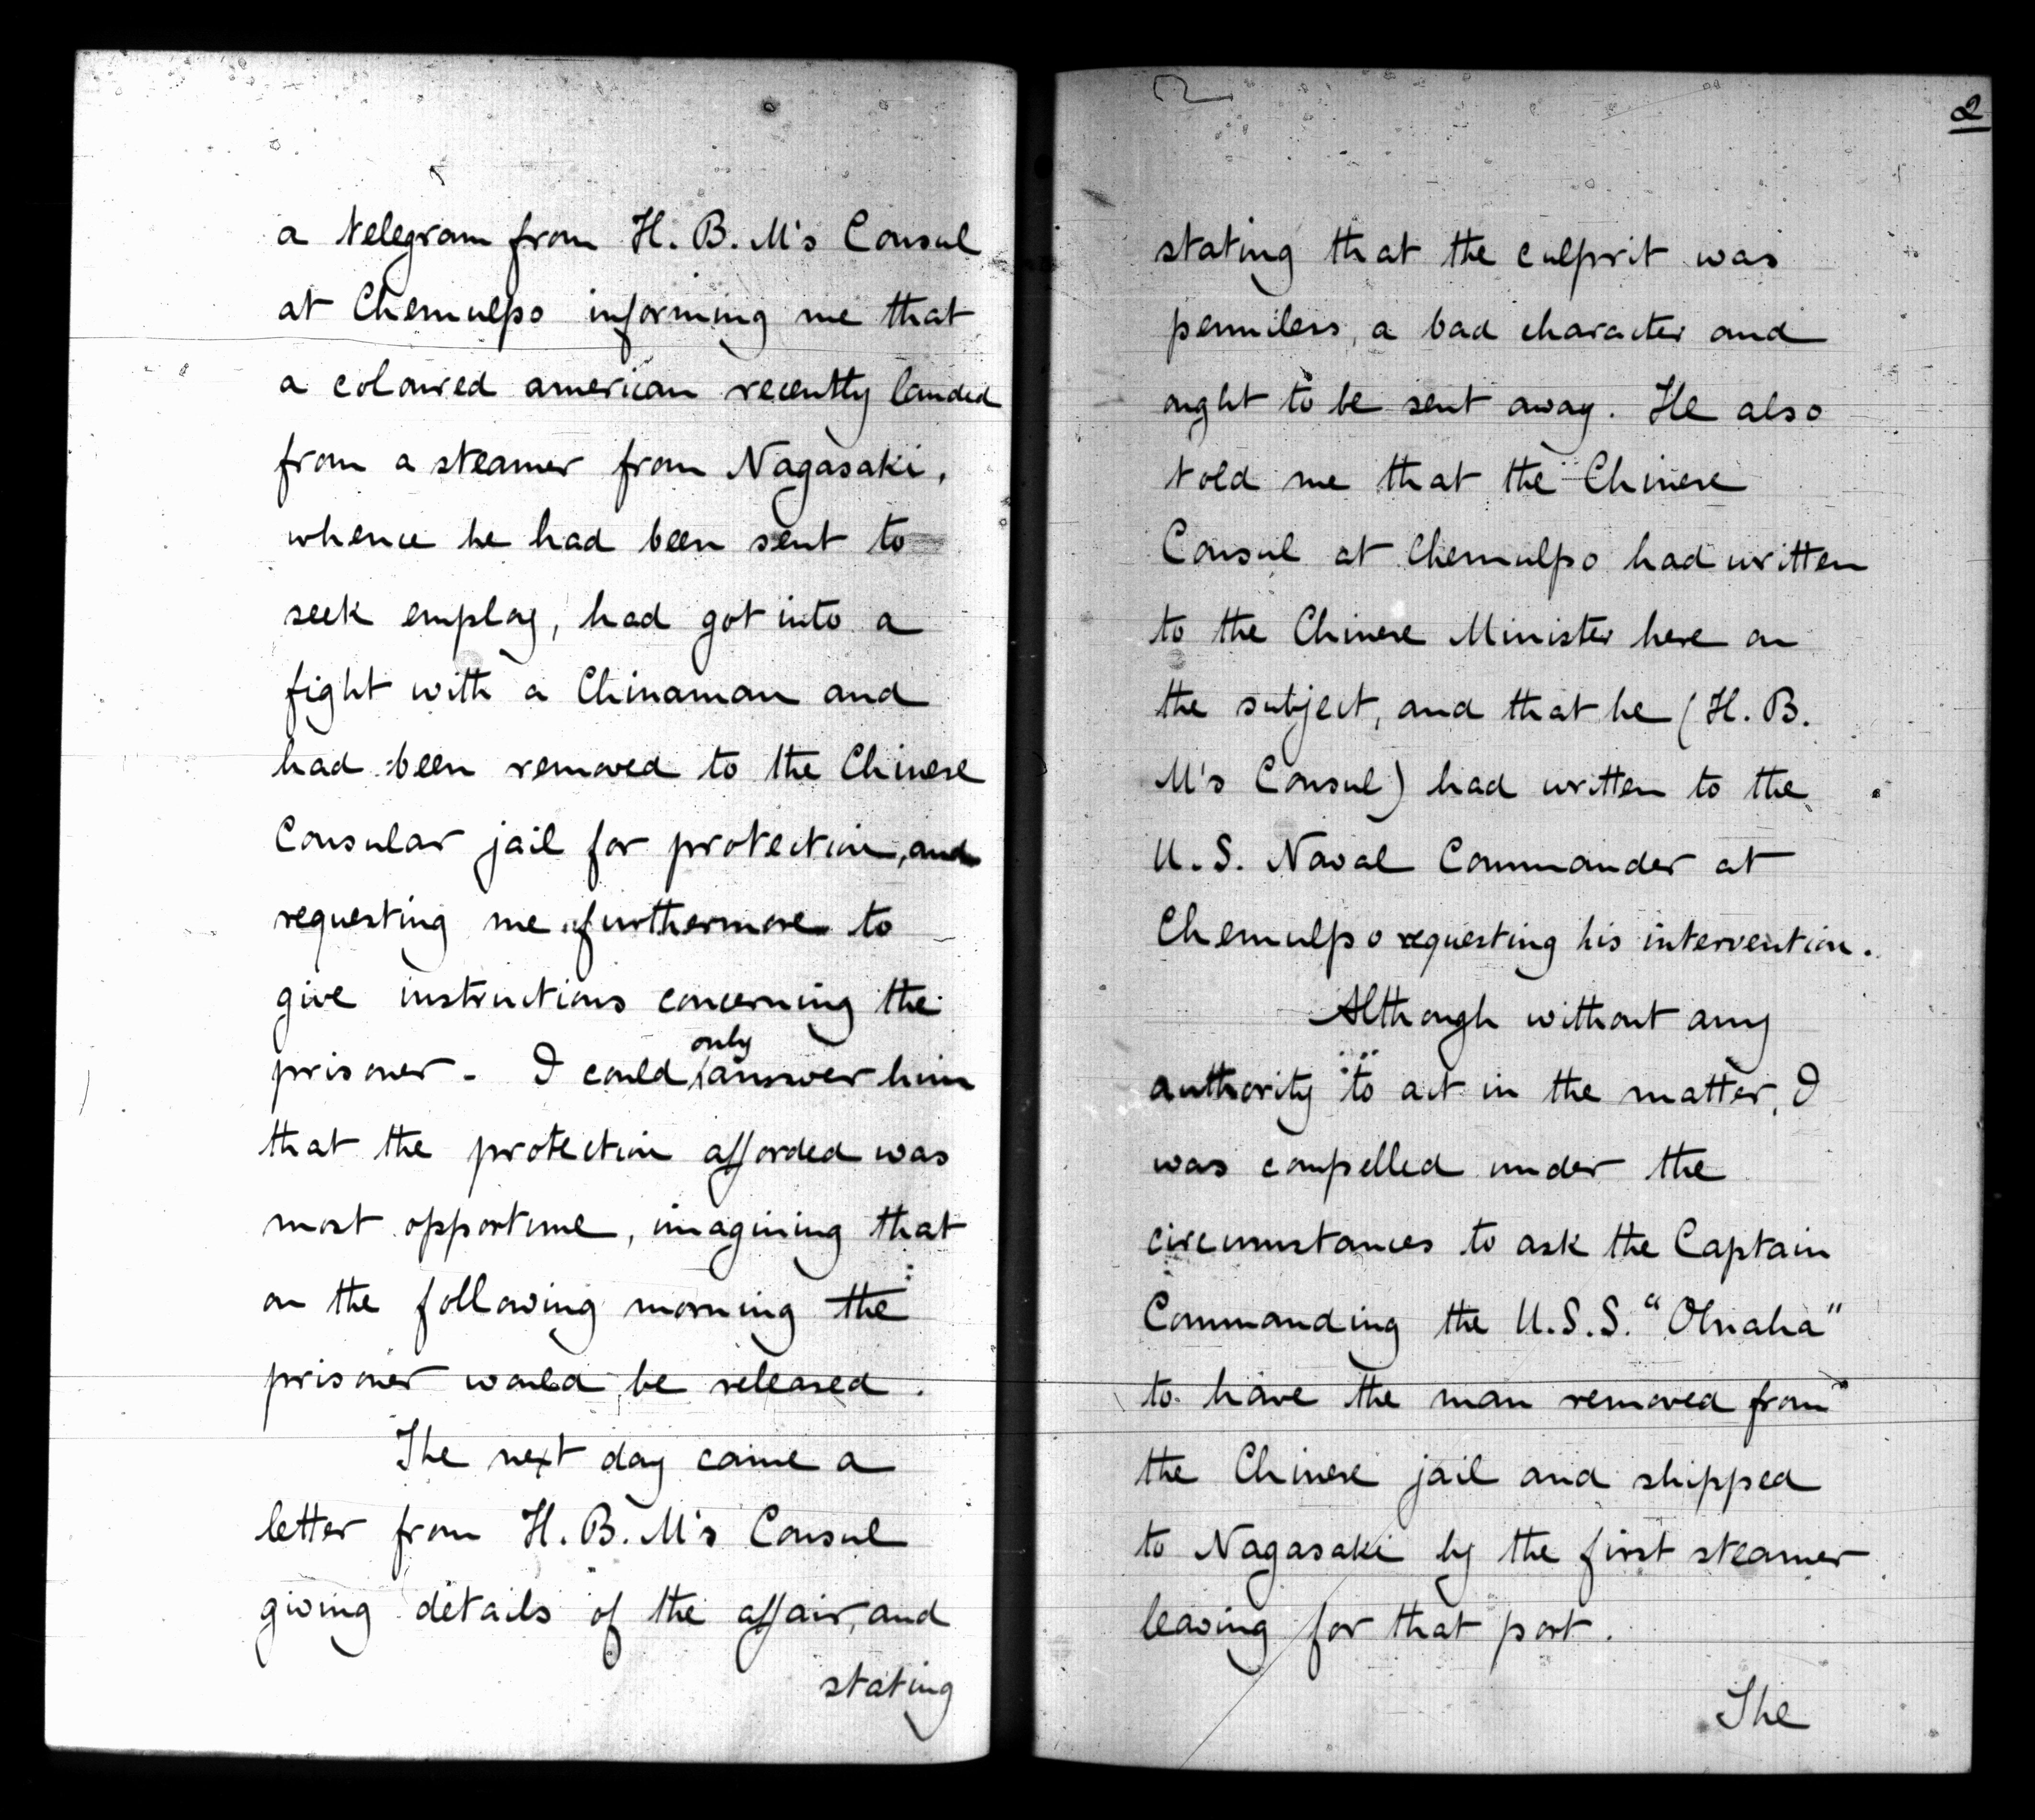 a telegram from H. B. M's Consul
at Chemulpo informing me that
a coloured american recently landed
from a steamer from Nagasaki,
whence he had been sent to
seek employ, had got into a
fight with a Chinaman and
had been removed to the Chinese
Consular jail for protection, and
requesting me furthermore to
give instructions concerning the
prisoner - I could only answer him
that the protection afforded was
most opportune, imagining that
on the following morning the
prisoner would be released.
The next day came a
letter from H. B. M's Consul
giving details of the affair, and
stating
2
stating that the culprit was
penniless, a bad character and
ought to be sent away. He also
told me that the Chinese
Consul at Chemulpo had written
to the Chinese Minister here on
the subject, and that he (H. B.
M's Consul) had written to the
U. S. Naval Commander at
Chemulpo requesting his intervention.
Although without any
authority to act in the matter, I
was compelled under the
circumstances to ask the Captain
Commanding the U.S.S. "Omaha"
to have the man removed from
the Chinese jail and shipped
to Nagasaki by the first steamer
leaving for that port.
The